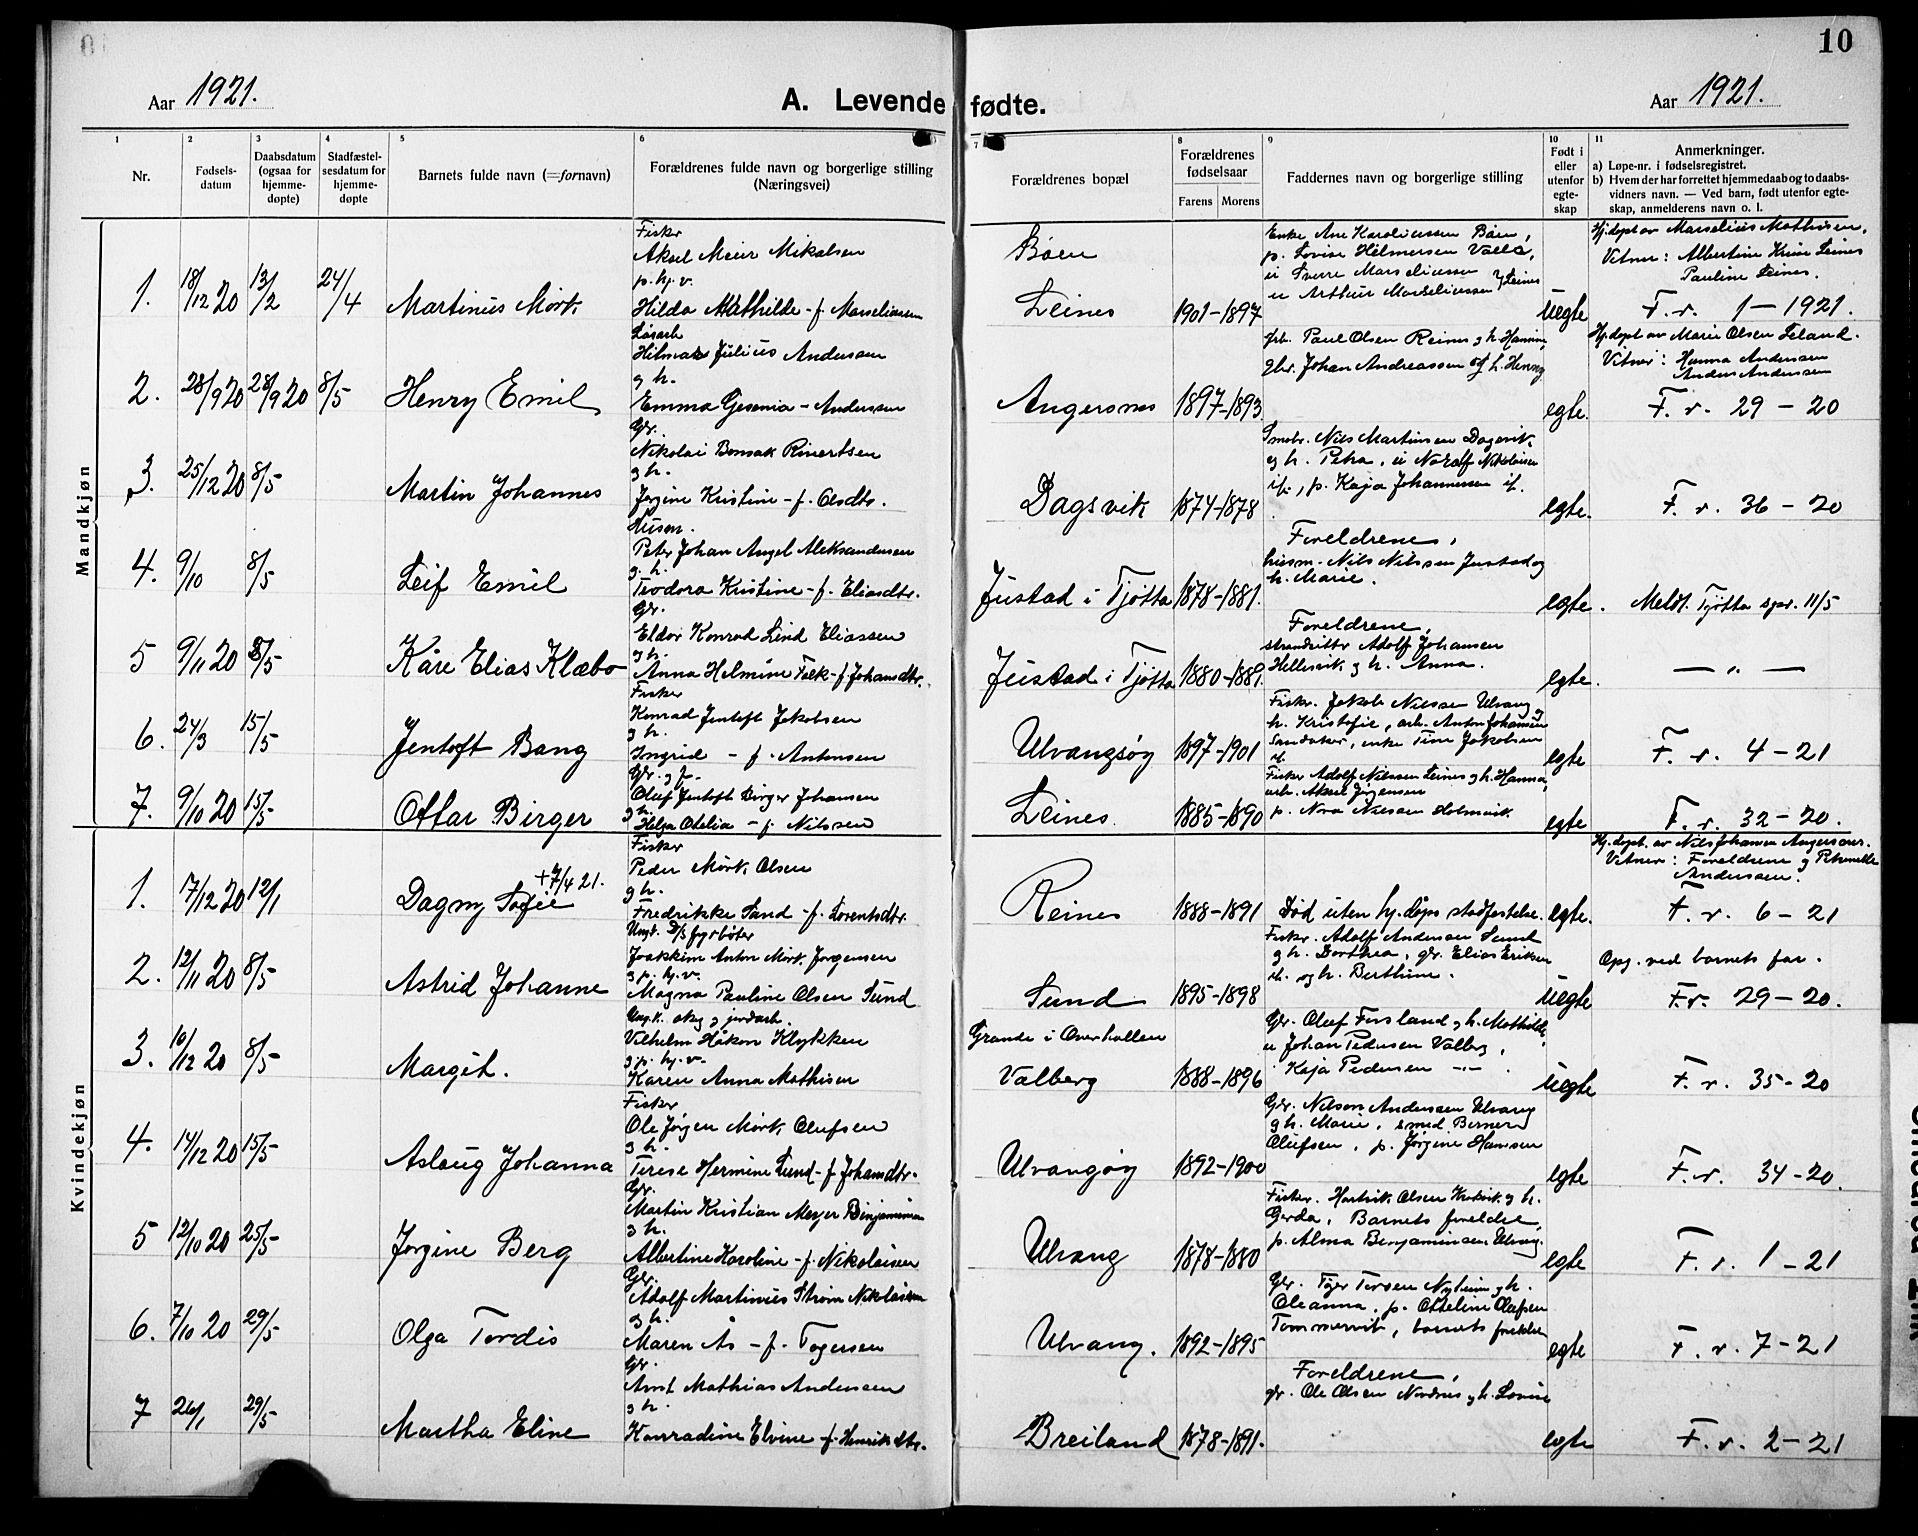 10
Aar 1921.
A. Levende fødte.
Aar 1921.
1 2 3 4 5 6 7 8 9 10 11
Nr.
Fødsels-
datum
Daabsdatum
(ogsaa for
hjemme-
døpte)
Stadfæstel-
sesdatum for
hjemme-
døpte
Barnets fulde navn (=fornavn)
Forældrenes fulde navn og borgerlige stilling
(Næringsvei)
Forældrenes bopæl
Forældrenes
fødselsaar
Farens Morens
Faddernes navn og borgerlige stilling
Født i
eller
utenfor
egte-
skap
Anmerkninger.
a) Løpe-nr. i fødselsregistret.
b) Hvem der har forrettet hjemmedaab og to daabs-
vidners navn. — Ved barn, født utenfor egte-
skap, anmelderens navn o. l.
Mandkjøn
1. 18/12 20 13/2 24/4 Martinus Mørk
Fisker
Aksel Meier Mikalsen
p. hj. v.
Hilda Mathilde - f. Marseliussen
Bøen
Leines
1901-1897
Enke Ane Karoliussen Bøen,
p. Lovise Hilmersen Valla,
u Sverre Marseliussen
u Arthur Marseliussen Leines
uegte
Hj.døpt av Marselius Mathisen.
Vitner: Albertine Leines
Pauline Leines.
F. r. 1 - 1921.
2. 28/9 20 28/9 20 8/5 Henry Emil
Løsarb
Hilmar Julius Andersen
g h.
Emma Gesenia - Andersen
Angersnes
1897-1893
Paul Olsen Reines g h.
Johan Andreassen og h.
egte.
Hj.døpt av Marie Olsen Leland.
Vitner: Hanna Andersen
Anders Andersen
F. r. 29 - 20
3. 25/12 20 8/5 Martin Johannes
Gbr.
Nikolai Bonsak Rinertsen
g h.
Jørgine Kristine - f. Olsdtr.
Dagsvik
1874-1878
Smbr. Nils Martinsen Dagsvik
og h. Petra, u Nikolaisen
p. Kaja Johannessen
egte.
F. r. 36 - 20
4. 9/10 8/5 Leif Emil
Husm.
Peter Johan Angel Aleksandersen
g. h.
Teodora Kristine - f. Eliasdtr.
Justad i Tjøtta
1878-1881.
Foreldrene,
husm. Nils Nilssen Justad og
h. Marie.
egte.
Meldt Tjøtta spr. 11/5
5 9/11 20 8/5 Kåre Elias Klæbo
Gbr.
Eldor Konrad Lind Eliassen
g h.
Anna Helmine Falk - f. Johansdtr.
Justad i Tjøtta
1880-1881.
Foreldrene,
strandsitter Adolf Johansen
Hellesvik g h. Anna.
egte.
— " —
6. 24/3 15/5 Jentoft Bang
Fisker
Konrad Jentoft Jakobsen
g h.
Ingrid - f. Antonsen
Ulvangsøy
1897-1901
Fisker. Jakob Nilssen Ulvang g
h. Kristofie, arb. Anton Johansen
Sandaker, enke Jakobsen
egte
F. r. 4 - 21
7. 9/10 20 15/5 Ottar Birger
Gbr. g f.
Oluf Jentoft Birger Johansen
g h.
Helga Otelia - f. Nilssen
Leines.
1885-1890
Fisker Adolf Nilssen Leines g h. Hanna,
arb. Aksel Jørgensen
p. Nora Nilssen Holmvik
egte
F. r. 32 - 20.
Kvindekjøn
1. 17/12 20 12/1 Dagny Sofie
+ 7/4 21.
Fisker
Peder Mørk Olsen
g h.
Fredrikke Sand - f. Lorentsdtr.
Reines
1888-1891
Død uten hj.døps stadfestelse.
egte.
Hj.døpt. av Nils Johansen
Vitner: Foreldrene g Petrnelle
Anderssen.
F. r. 6 - 21
2. 12/11 20 8/5 Astrid Johanne
Ungk. fyrbøter
Joakkim Anton Mørk Jørgensen
g p. hj. v.
Magna Pauline Olsen Sund
Sund
1895-1898
Fisker. Adolf Andersen Sund
g h. Dorthea, gbr. Elias Eriksen
og h. Berthine.
uegte
Opg. ved barnets far.
F.r. 29 - 20.
3. 16/12 20 8/5 Margit.
Ungk. skog g jordarb.
Vilhelm Håkon Klykken
g p. hj. v.
Karen Anna Mathisen
Grande i Overhallen
Valberg
1888-1896
Gbr. Oluf Forsland g h. Mathilde,
u Johan Pedersen Valberg,
Kaja Pedersen — " —
uegte
F. r. 35 - 20
4. 14/12 20 15/5 Aslaug Johanna
Fisker
Ole Jørgen Mørk Olufsen
g h.
Terese Hermine Lund - f. Johansdtr.
Ulvangøy
1892-1900
Gbr. Nelson Andersen Ulvang
g h. Marie, smed Berner
Olufsen, p. Jørgine Hansen
egte
F. r. 34 - 20.
5 12/10 20 25/5 Jørgine Berg
Gbr.
Martin Kristian Meyer Benjaminsen
g h.
Albertine Karoline - f. Nikolaisen
Ulvang
1878-1880
Fisker. Hartvik Olsen g h.
Gerda, Barnets foreldre,
p. Alma Benjaminsen Ulvang.
egte
F. r. 1 - 21
6. 7/10 20 29/5 Olga Tordis
Gbr.
Adolf Martinius Strøm Nikolaisen
g h.
Maren Ås - f. Togersen
Ulvang.
1892-1895
Gbr. g h.
Oleanna, p. Otteline Olufsen
Tommervik, barnets foreldre
egte
F. r. 7 - 21
7 26/1 29/5 Martha Eline
Gbr.
Arnt Mathias Andersen
g h.
Konradine Elvine - f. Henriksdtr.
Breiland
1878-1891.
Foreldrene,
gbr. Ole Olsen Nordnes g h. Lovise
egte
F. r. 2 - 21